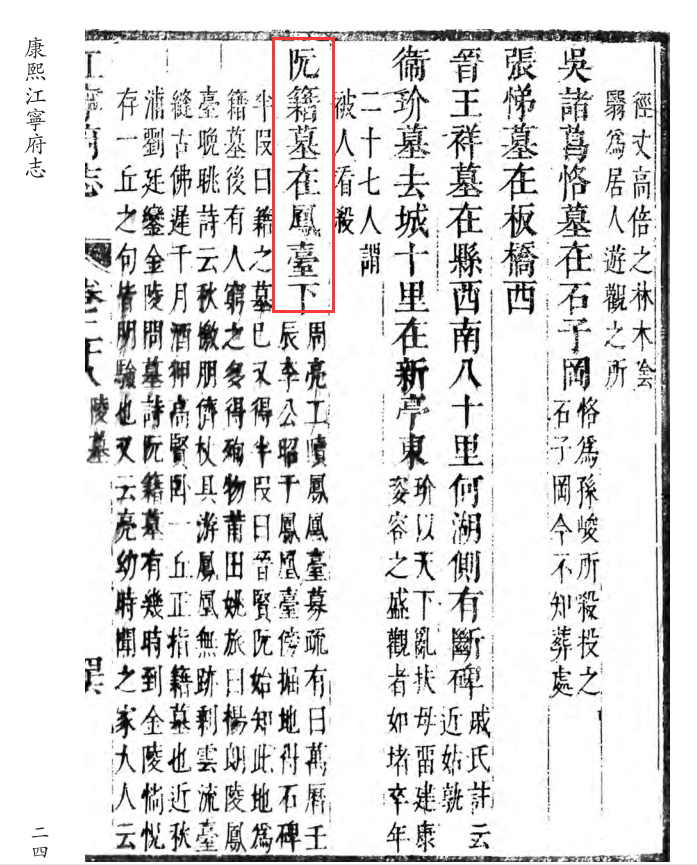 徑丈高倍之林木陰
翳為居人遊觀之所
吳諸葛恪墓在石子岡恪為孫峻所殺投之
石子岡今不知葬處
張悌墓在板橋西
晉王祥墓在縣西南八十里何湖側有斷碑戚氏註云
近姑孰
衞玠墓去城十里在新亭東玠以天下亂扶母留建康
姿容之盛觀者如堵卒年
二十七人謂
被人看殺
阮籍墓在鳳臺下周亮工牘鳳凰臺募疏有曰萬曆壬
辰李公昭于鳳凰臺傍掘地得石碑
半段曰籍之墓已又得半段曰晉賢阮始知此地為
籍墓後有人窮之多得殉物莆田姚旅曰楊朗陵鳳
臺晚眺詩云秋徹朋儕杖具游鳳凰無跡剩雲流臺
縫古佛遲千月酒狎高賢卧一丘正指籍墓也近秋
浦劉廷鑾金陵問墓詩阮籍墓有幾時到金陵惝怳
存一丘之句皆明驗也又云亮幼時聞之家大人云
江寧府志
卷二十八
陵墓
康熙江寧府志
二四